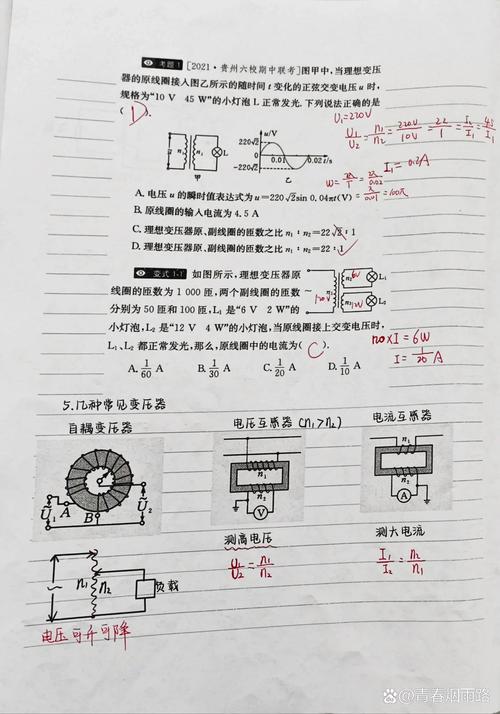 考题1 [2021·贵州六校期中联考]图甲中,当理想变压
器的原线圈接入图乙所示的随时间t变化的正弦交变电压u时,
规格为“10 V 45 W”的小灯泡L正常发光.下列说法正确的是
( D ).
U₁=220V
U₁/U₂=n₁/n₂=220V/10V=22/1=I₂/I₁=4.5/I₁
I₁=0.2A
n₁ n₂ L
甲
u/V
220√2
0
-220√2
0.01 0.02 t/s
乙
ω=2π/T=2π/0.02
=π/0.01=100π
A. 电压u的瞬时值表达式为u=220√2sin 0.04πt(V)
B. 原线圈的输入电流为4.5 A
C. 理想变压器原、副线圈的匝数之比n₁:n₂=22√2:1
D. 理想变压器原、副线圈的匝数之比n₁:n₂=22:1
变式1-1 如图所示,理想变压器原
线圈的匝数为1 000匝,两个副线圈的匝数
分别为50匝和100匝,L₁是“6 V 2 W”的
小灯泡,L₂是“12 V 4 W”的小灯泡,当原线圈接上交变电压时,
L₁、L₂都正常发光,那么,原线圈中的电流为( C ).
120V n₁ n₂ 6V L₁
n₃ 12V L₂
120×I=6W
I=1/20 A
A. 1/60 A B. 1/30 A C. 1/20 A D. 1/10 A
5.几种常见变压器
自耦变压器
电压互感器(n₁>n₂)
电流互感器
U₁ A B U₂
n₁
n₂
V
n₁
n₂
A
测高电压
U₁/U₂=n₁/n₂
测大电流
I₁/I₂=n₂/n₁
n₁ n₂ 负载
电压可升可降
知乎 @青春烟雨路